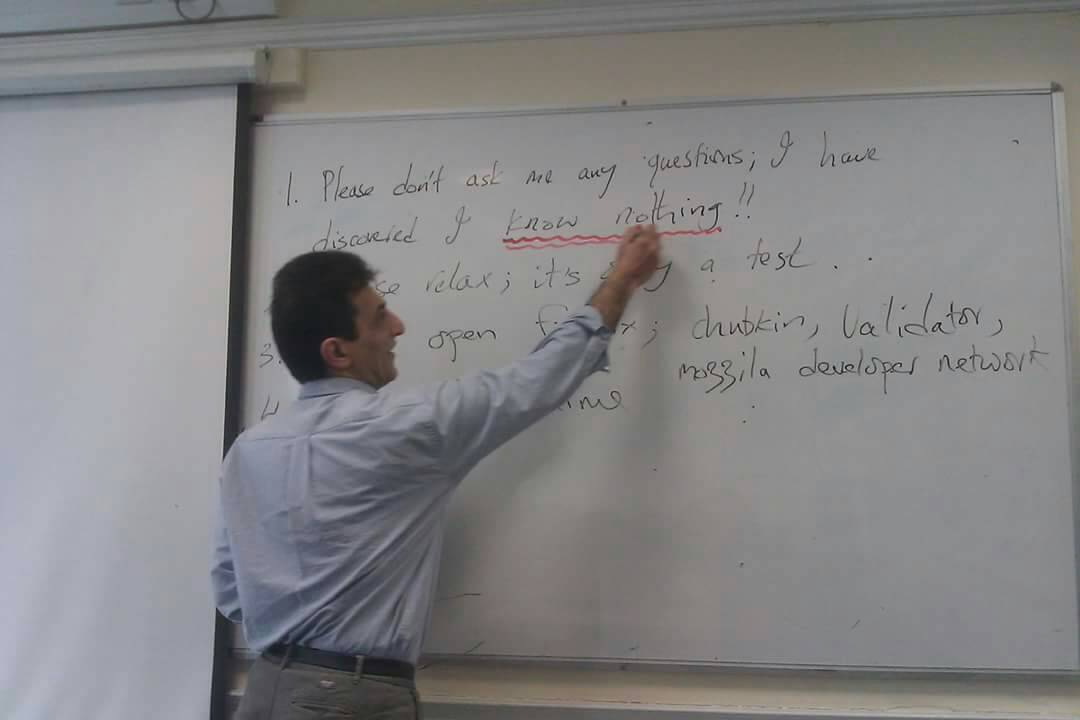 1. Please don't ask me any questions; I have
discovered I know nothing!!
relax; it's a test . .
3. open chubkin, validator,
mozzila developer network
4